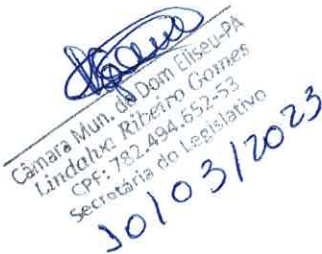 Câmara Mun. de Dom Eliseu-PA
Lindalva Ribeiro Gomes
CPF: 782.494.652-53
Secretária do Legislativo
30/03/2023